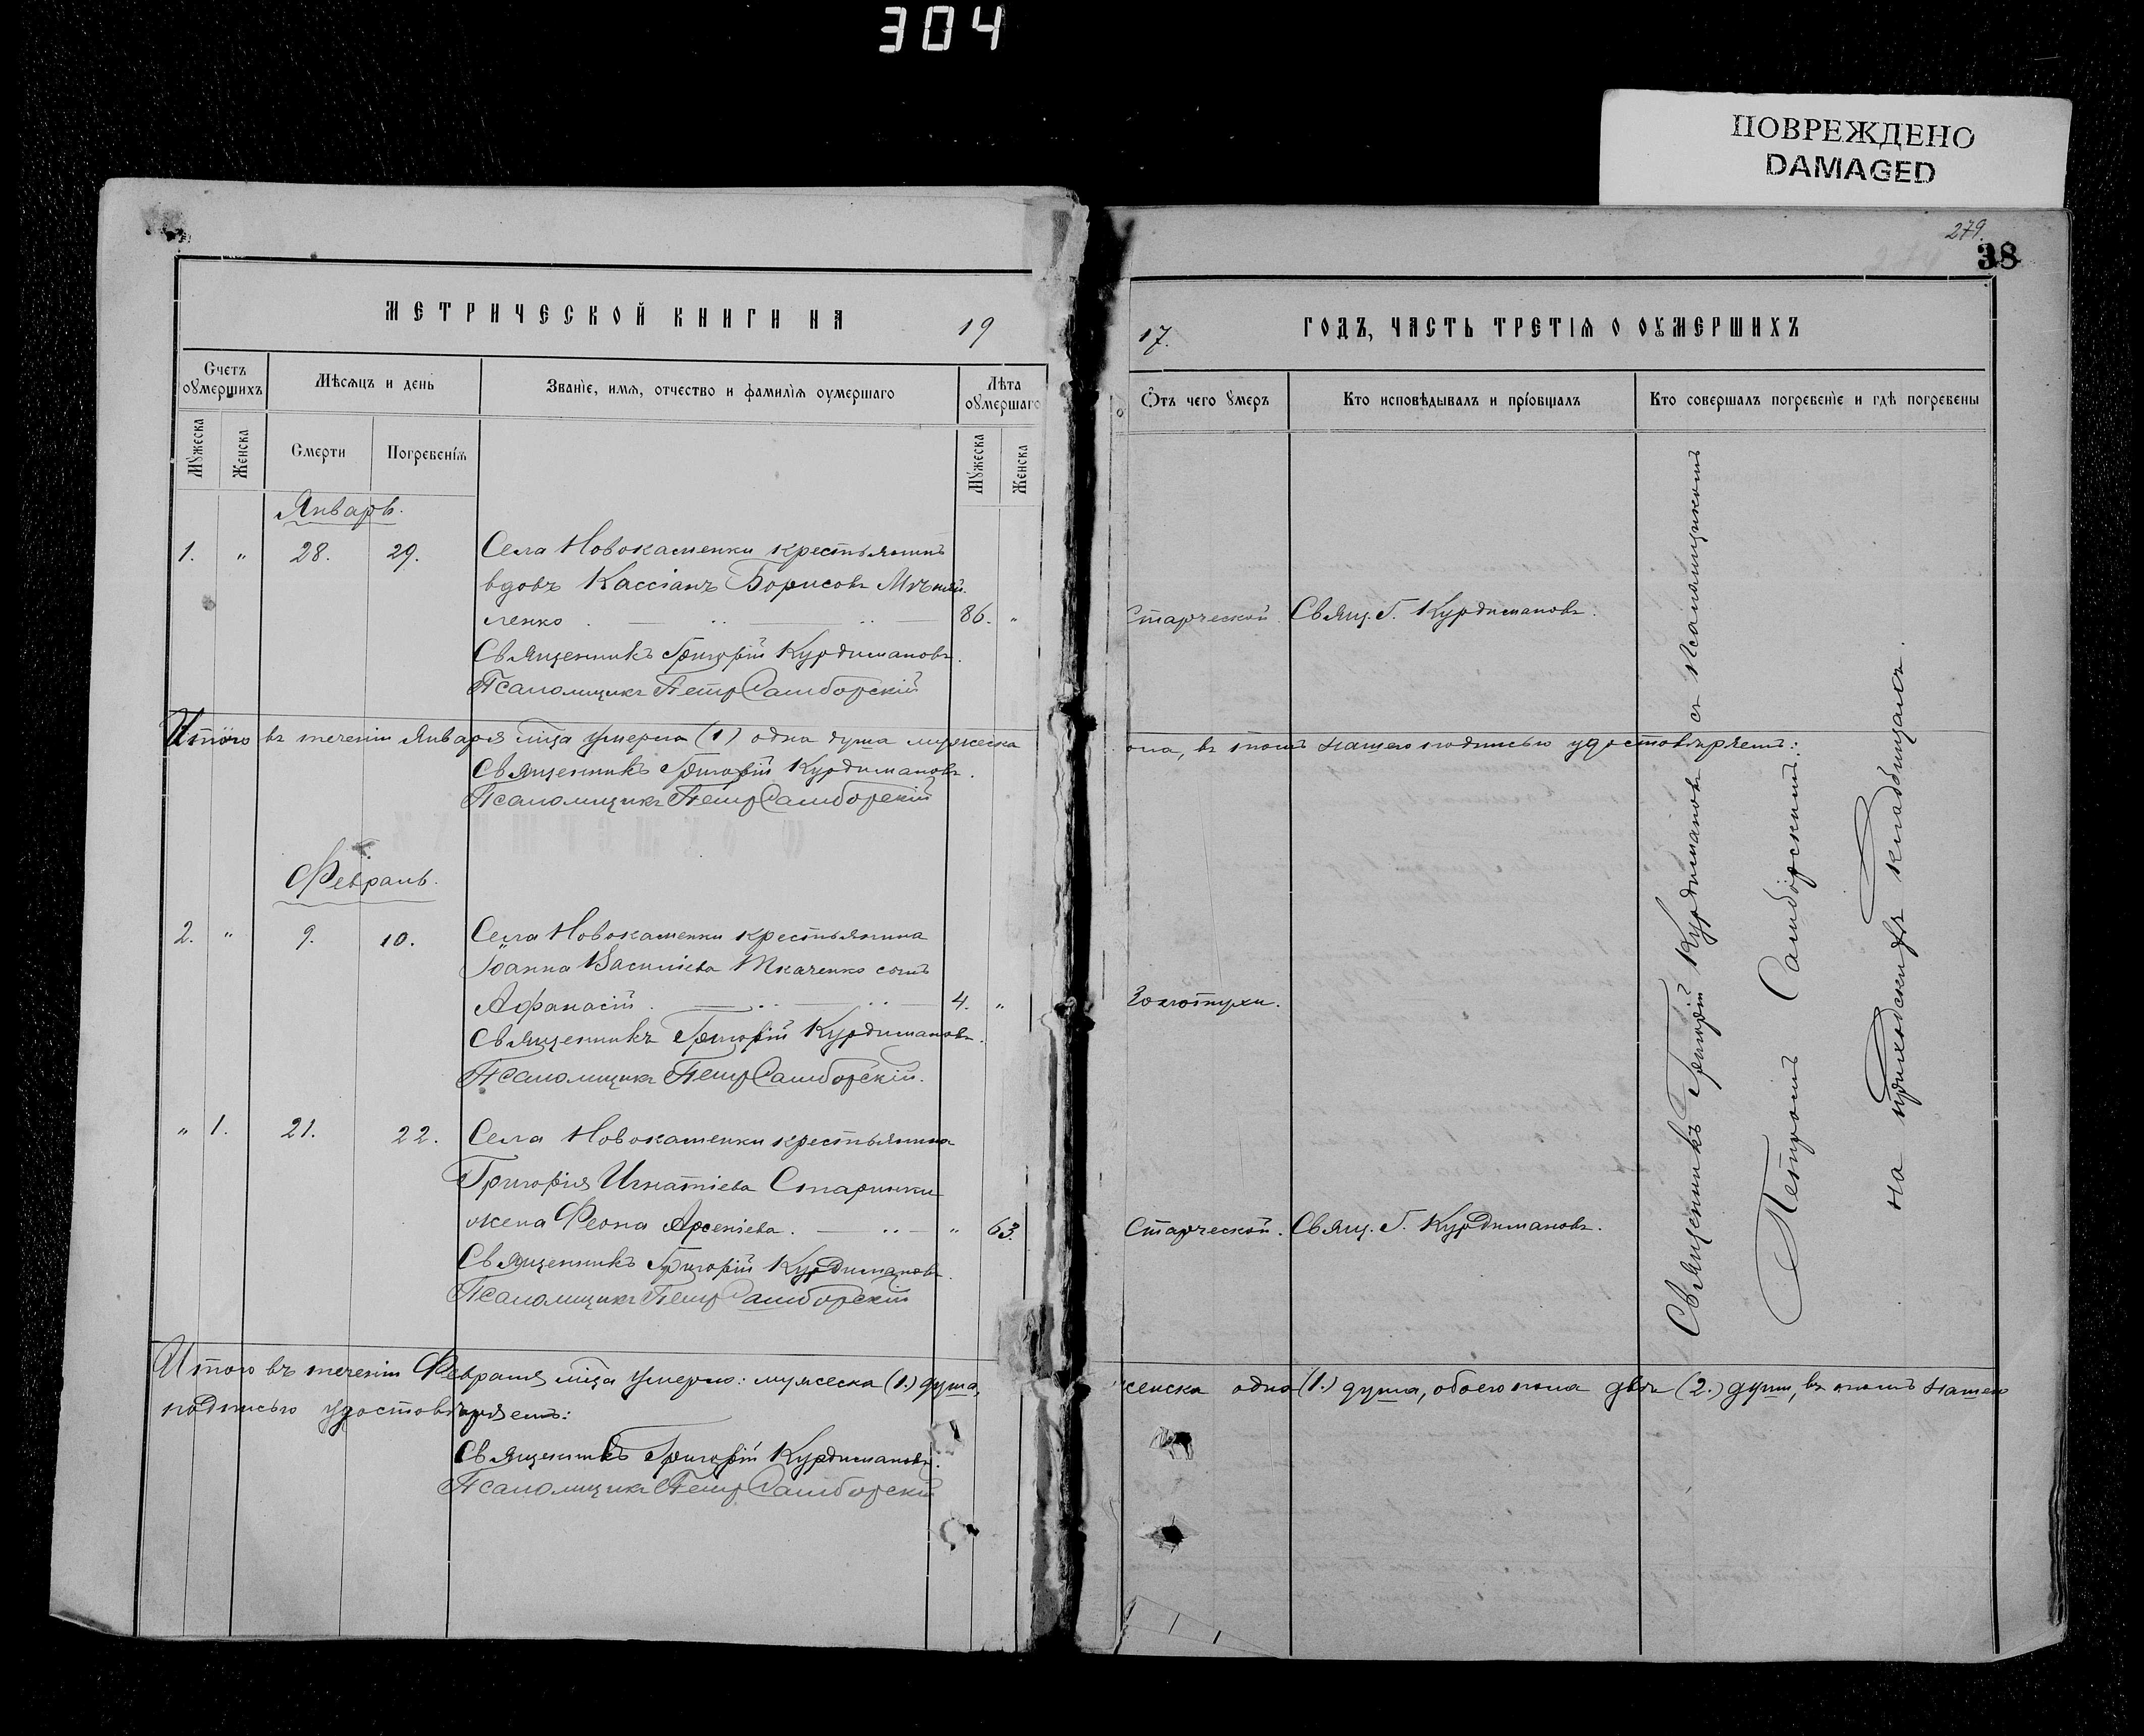 304
ПОВРЕЖДЕНО
DAMAGED
279.
38
МЕТРИЧЕСКОЙ КНИГИ НА 19
17. ГОДЪ, ЧАСТЬ ТРЕТІѦ О ОУМЕРШИХЪ
Счетъ оумершихъ
Мѣсѧцъ и день
Званіе, имѧ, отчество и фамиліѧ оумершаго
Лѣта оумершаго
Мꙋжеска
Женска
Смерти
Погребеніѧ
Мꙋжеска
Женска
Ѿтъ чего ꙋмеръ
Кто исповѣдывалъ и пріобщалъ
Кто совершалъ погребеніе и гдѣ погребены
Январь.
1. " 28. 29. Села Новокаменки крестьянинъ
вдовъ Кассіанъ Борисовъ
ленко 86. " Старческой. Свящ. Г. Курдимановъ.
Священникъ Григорій Курдимановъ.
Псаломщикъ Петръ Самборскій
Итого въ теченіи Января м-ца умерла (1) одна душа мужеска
пола, въ томъ нашею подписью удостовѣряемъ:
Священникъ Григорій Курдимановъ.
Псаломщикъ Петръ Самборскій
Февраль.
2. " 9. 10. Села Новокаменки крестьянина
Іоанна Васильева Ткаченко сынъ
Афанасій 4. " Золотухи.
Священникъ Григорій Курдимановъ.
Псаломщикъ Петръ Самборскій.
" 1. 21. 22. Села Новокаменки крестьянина
Григорія Игнатіева Старинки
жена Феона Арсеніева. " 63. Старческой. Свящ. Г. Курдимановъ.
Священникъ Григорій Курдимановъ.
Псаломщикъ Петръ Самборскій
Священникъ Григорій Курдимановъ съ Псаломщикомъ
Петромъ Самборскимъ.
на приходскомъ кладбищѣ.
Итого въ теченіи Февраля м-ца умерло: мужеска (1.) душа,
женска одна (1.) душа, обоего пола двѣ (2.) души, въ томъ нашею
подписью удостовѣряемъ:
Священникъ Григорій Курдимановъ.
Псаломщикъ Петръ Самборскій